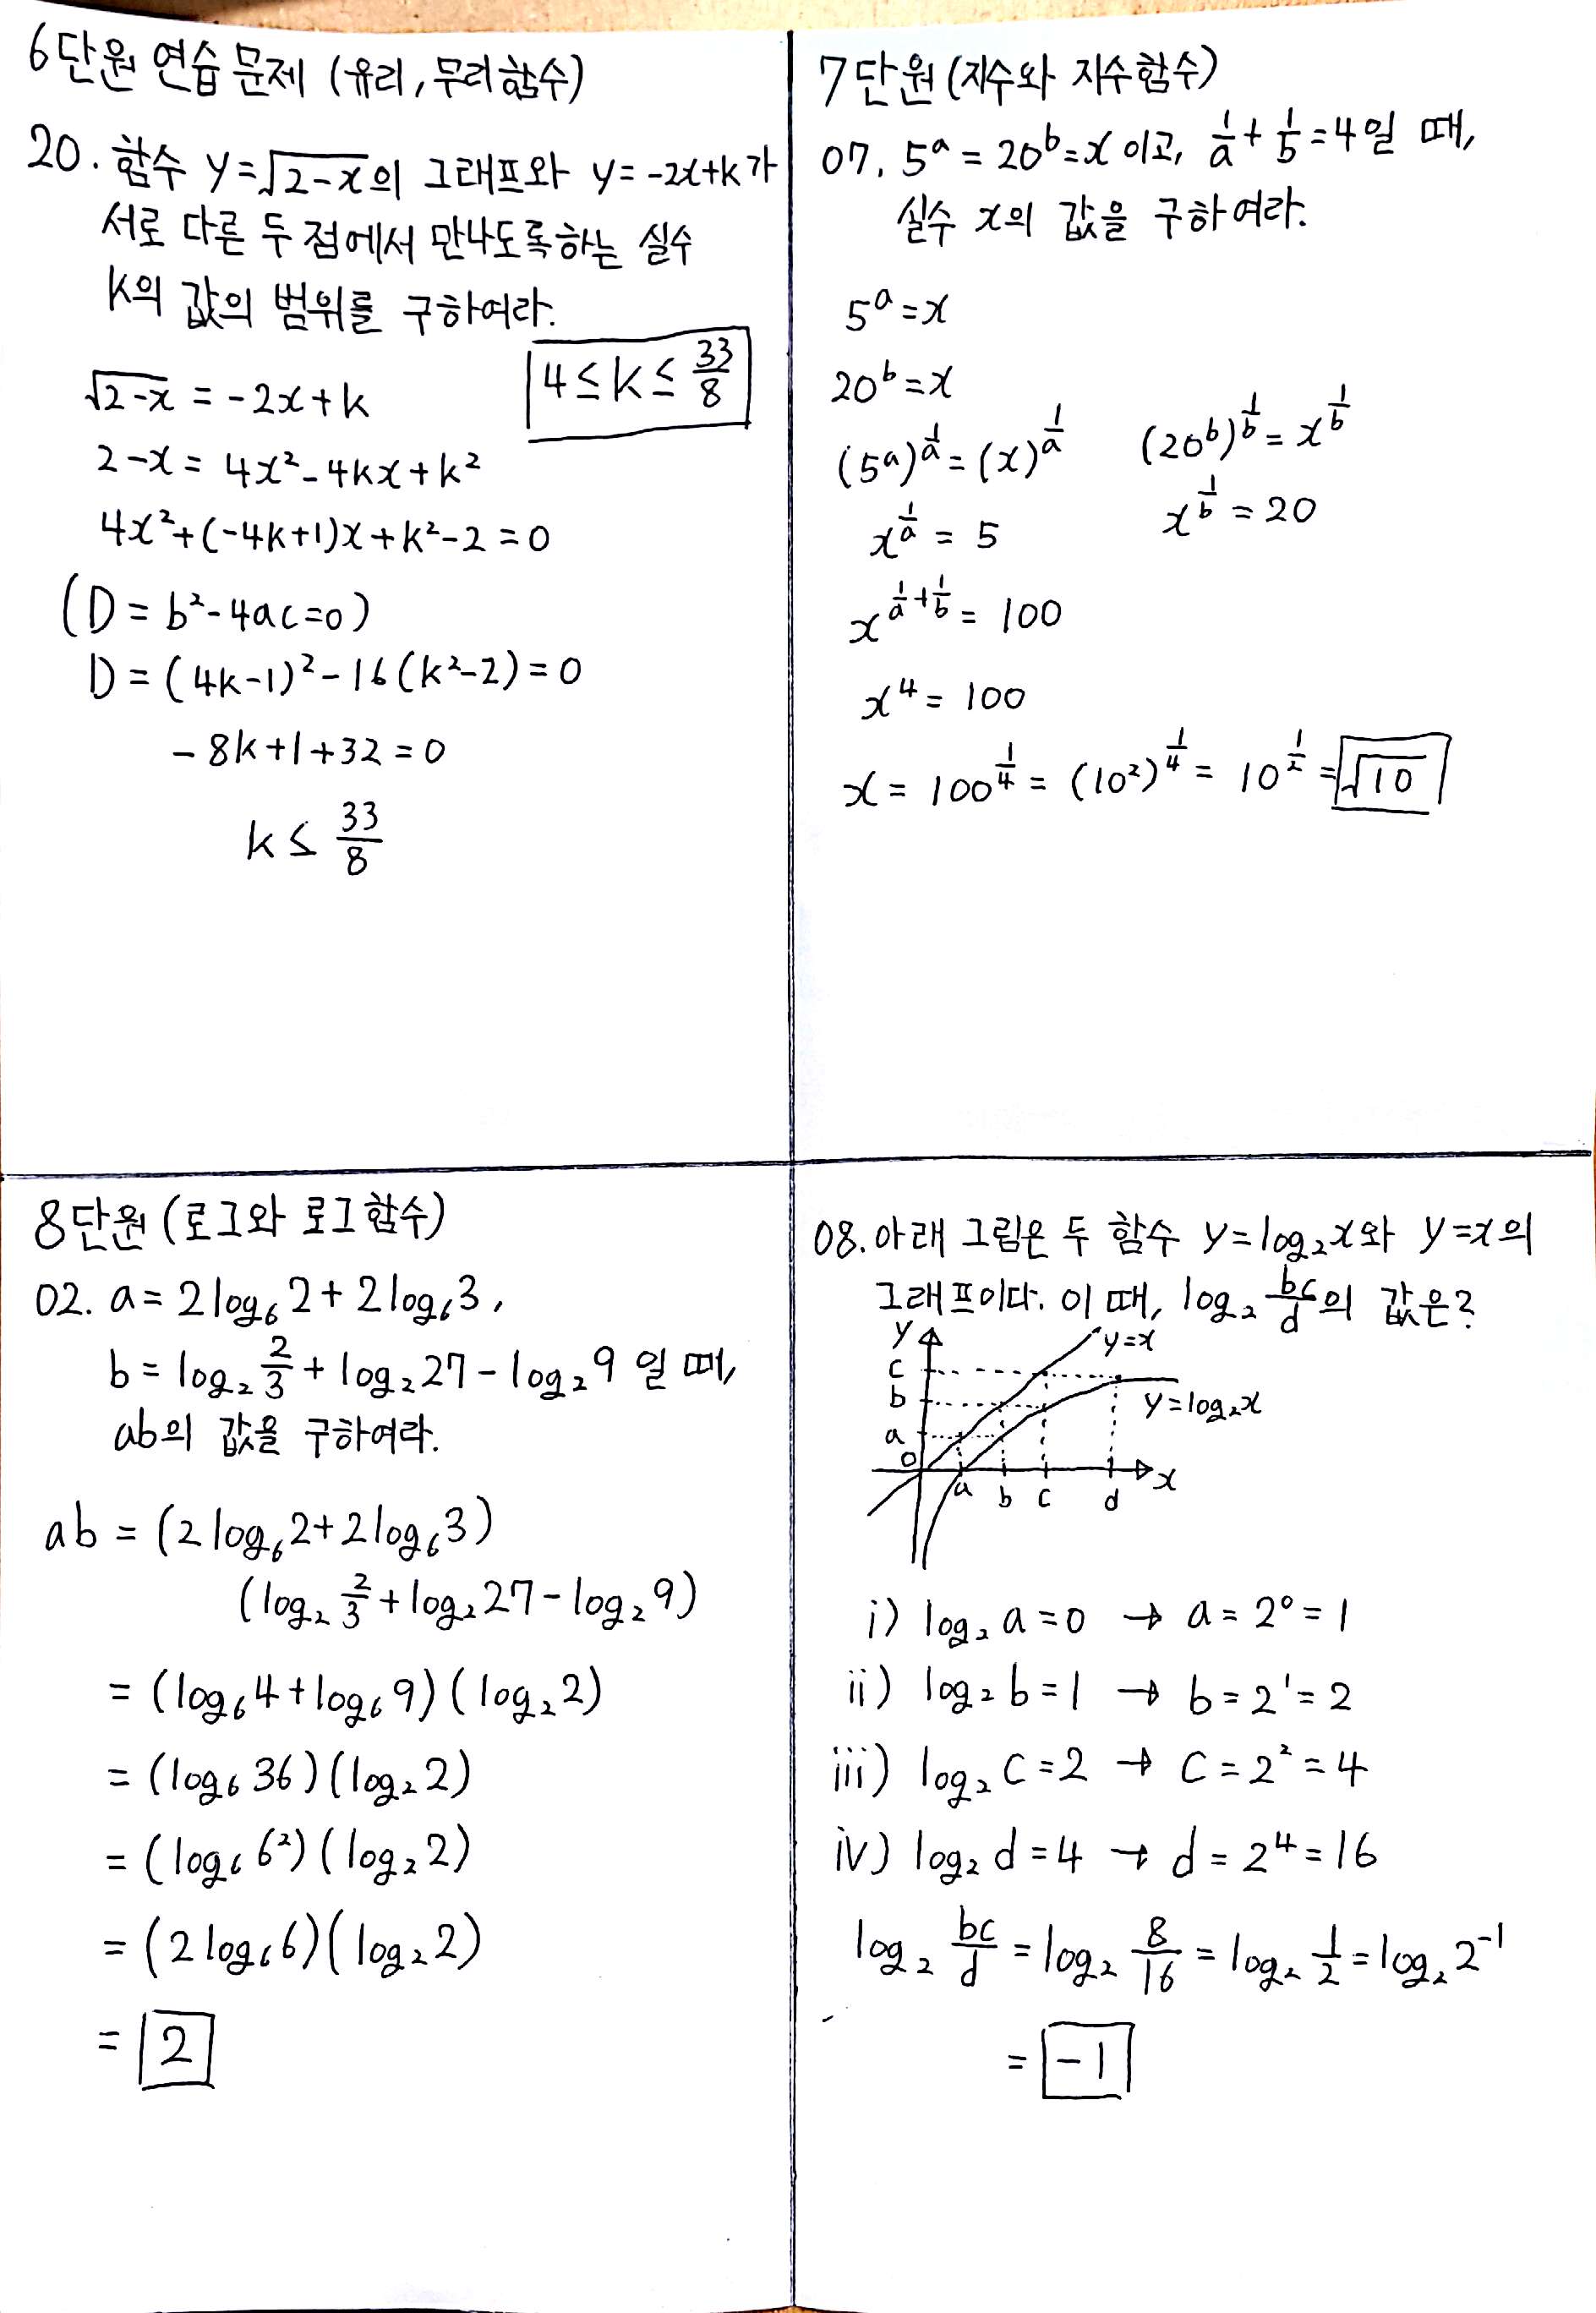 6단원 연습 문제 (유리, 무리함수)
20. 함수 y=√2-x의 그래프와 y=-2x+k가
서로 다른 두 점에서 만나도록하는 실수
k의 값의 범위를 구하여라.
4≤k≤33/8
√2-x = -2x+k
2-x = 4x²-4kx+k²
4x²+(-4k+1)x+k²-2=0
(D=b²-4ac=0)
D=(4k-1)²-16(k²-2)=0
-8k+1+32=0
k≤33/8
7단원 (지수와 지수함수)
07. 5ᵃ=20ᵇ=x 이고, 1/a+1/b=4일 때,
실수 x의 값을 구하여라.
5ᵃ=x
20ᵇ=x
(5ᵃ)^(1/a)=(x)^(1/a) (20ᵇ)^(1/b)=x^(1/b)
x^(1/a)=5 x^(1/b)=20
x^(1/a+1/b)=100
x⁴=100
x=100^(1/4)=(10²)^(1/4)=10^(1/2)=√10
8단원 (로그와 로그함수)
02. a=2log₆2+2log₆3,
b=log₂2/3+log₂27-log₂9 일 때,
ab의 값을 구하여라.
ab=(2log₆2+2log₆3)
(log₂2/3+log₂27-log₂9)
=(log₆4+log₆9)(log₂2)
=(log₆36)(log₂2)
=(log₆6²)(log₂2)
=(2log₆6)(log₂2)
=2
08. 아래 그림은 두 함수 y=log₂x와 y=x의
그래프이다. 이 때, log₂bc/d의 값은?
y
y=x
c
b
y=log₂x
a
O
x
a b c d
i) log₂a=0 → a=2⁰=1
ii) log₂b=1 → b=2¹=2
iii) log₂c=2 → c=2²=4
iv) log₂d=4 → d=2⁴=16
log₂bc/d=log₂8/16=log₂1/2=log₂2⁻¹
=-1